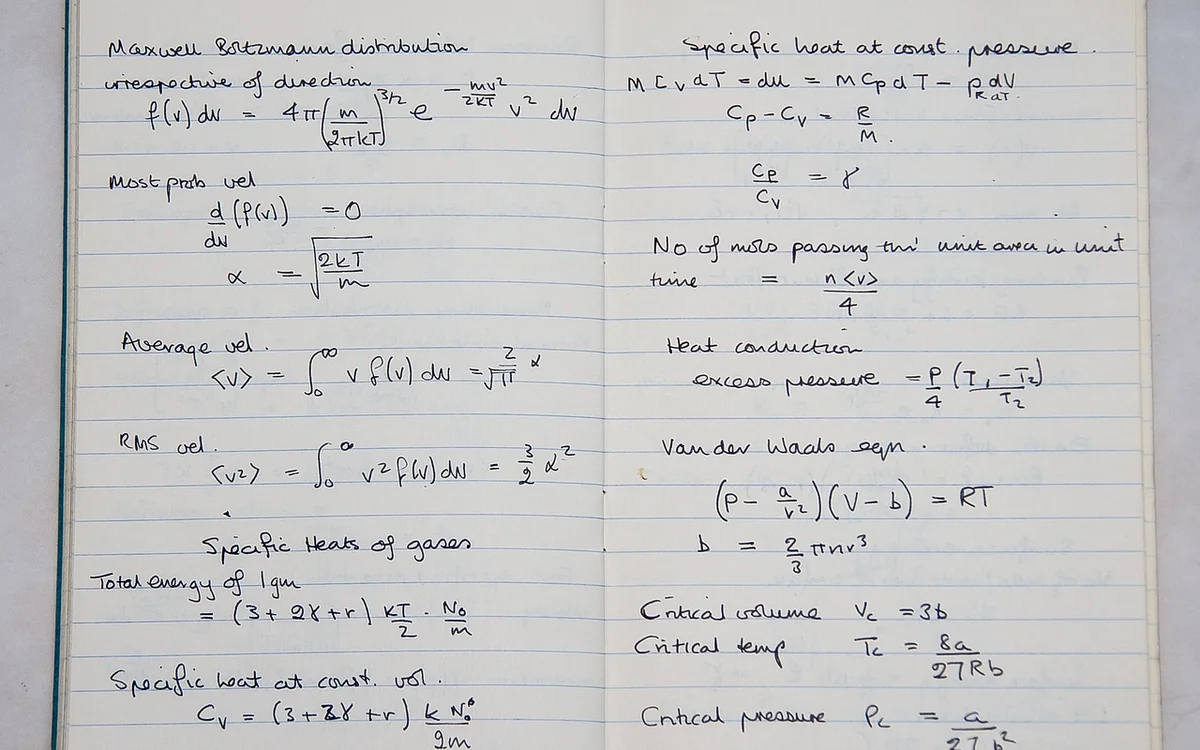 Maxwell Boltzmann distribution
irrespective of direction
f(v) dv = 4π(m/2πkT)^3/2 e^-mv²/2KT v² dv
Most prob vel
d/dv (f(v)) = 0
α = √(2kT/m)
Average vel.
<v> = ∫₀^∞ v f(v) dv = 2/√π α
RMS vel.
<v²> = ∫₀^∞ v² f(v) dv = 3/2 α²
Specific Heats of gases
Total energy of 1 gm
= (3 + 2γ + r) kT/2 . No/m
Specific heat at const. vol.
Cv = (3 + 2γ + r) k No/2m
Specific heat at const. pressure.
M Cv dT = du = M Cp dT - p dV
R dT.
Cp - Cv = R/M.
Cp/Cv = γ
No of mols passing thro' unit area in unit
time = n<v>/4
Heat conduction
excess pressure = P/4 (T₁ - T₂)/T₂
Van der Waals eqn.
(P - a/v²)(V - b) = RT
b = 2/3 πnr³
Critical volume Vc = 3b
Critical temp Tc = 8a/27Rb
Critical pressure Pc = a/27b²